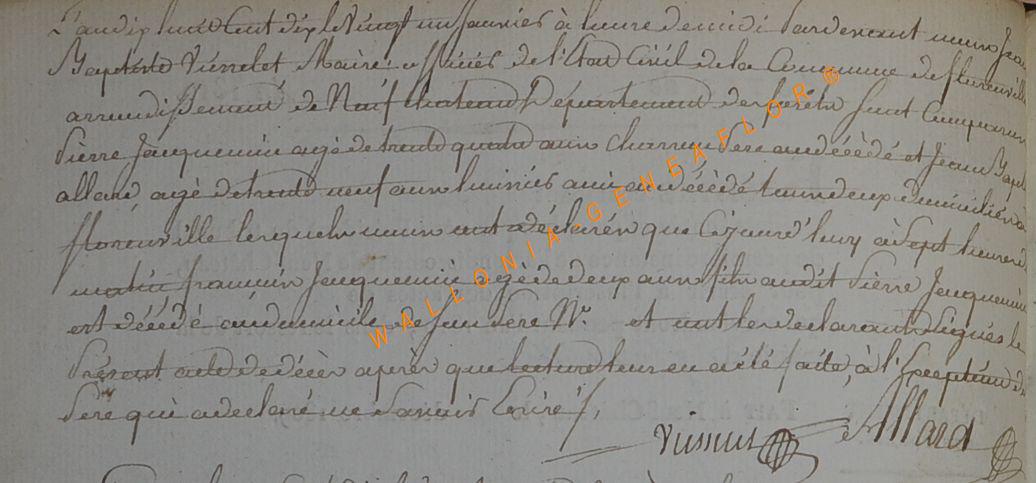 L'an dix huit Cent dix le vingt un janvier à heure de midi Pardevant nous Jean
Baptiste Maire officier de l'Etat Civil de la Commune de florenville
arrondissement de Neufchateau Département des forêts Sont Comparus
Pierre Jacquemin agé de trente quatre ans Charron Pere au décédé et Jean Bapt
allard agé de trente neuf ans ami au décédé tous deux domiciliés à
florenville lesquels nous ont déclarés que Cejourd'huy à Sept heures du
matin françois Jacquemin agé de deux ans fils audit Pierre Jacquemin
est décédé au domicile de Son Pere N.° et ont les declarants Signés le
Présent acte de décès après que lecture leur en a été faite, à l'Exception du
Pere qui a declaré ne Savoir Ecrire /,
Allard
WALLONIA-GENEAFLOR®